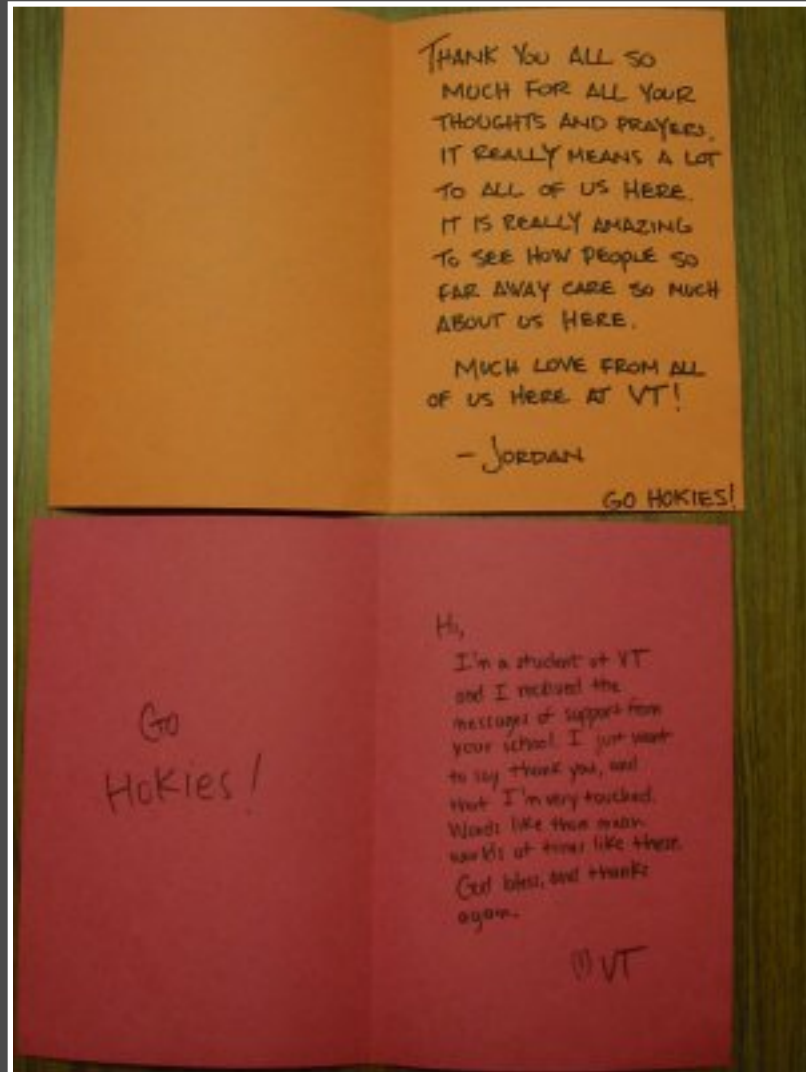 THANK YOU ALL SO
MUCH FOR ALL YOUR
THOUGHTS AND PRAYERS.
IT REALLY MEANS A LOT
TO ALL OF US HERE.
IT IS REALLY AMAZING
TO SEE HOW PEOPLE SO
FAR AWAY CARE SO MUCH
ABOUT US HERE.
MUCH LOVE FROM ALL
OF US HERE AT VT!
- JORDAN
GO HOKIES!
Go
Hokies!
Hi,
I'm a student at VT
and I received the
messages of support from
your school. I just want
to say thank you, and
that I'm very touched.
Words like them mean
worlds at times like these.
God bless, and thanks
again.
♡ VT